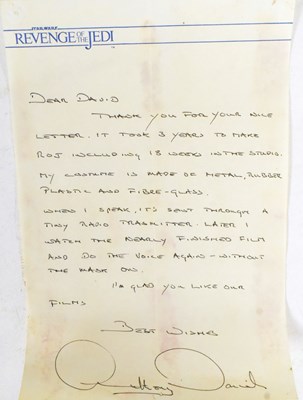 STAR WARS
REVENGE OF THE JEDI
DEAR DAVID
THANK YOU FOR YOUR NICE
LETTER. IT TOOK 3 YEARS TO MAKE
ROJ INCLUDING 18 WEEKS IN THE STUDIO.
MY COSTUME IS MADE OF METAL, RUBBER
PLASTIC AND FIBRE-GLASS.
WHEN I SPEAK, IT'S SENT THROUGH A
TINY RADIO TRASMITTER. LATER I
WATCH THE NEARLY FINISHED FILM
AND DO THE VOICE AGAIN - WITHOUT
THE MASK ON.
I'M GLAD YOU LIKE OUR
FILMS
BEST WISHES
Anthony Daniels